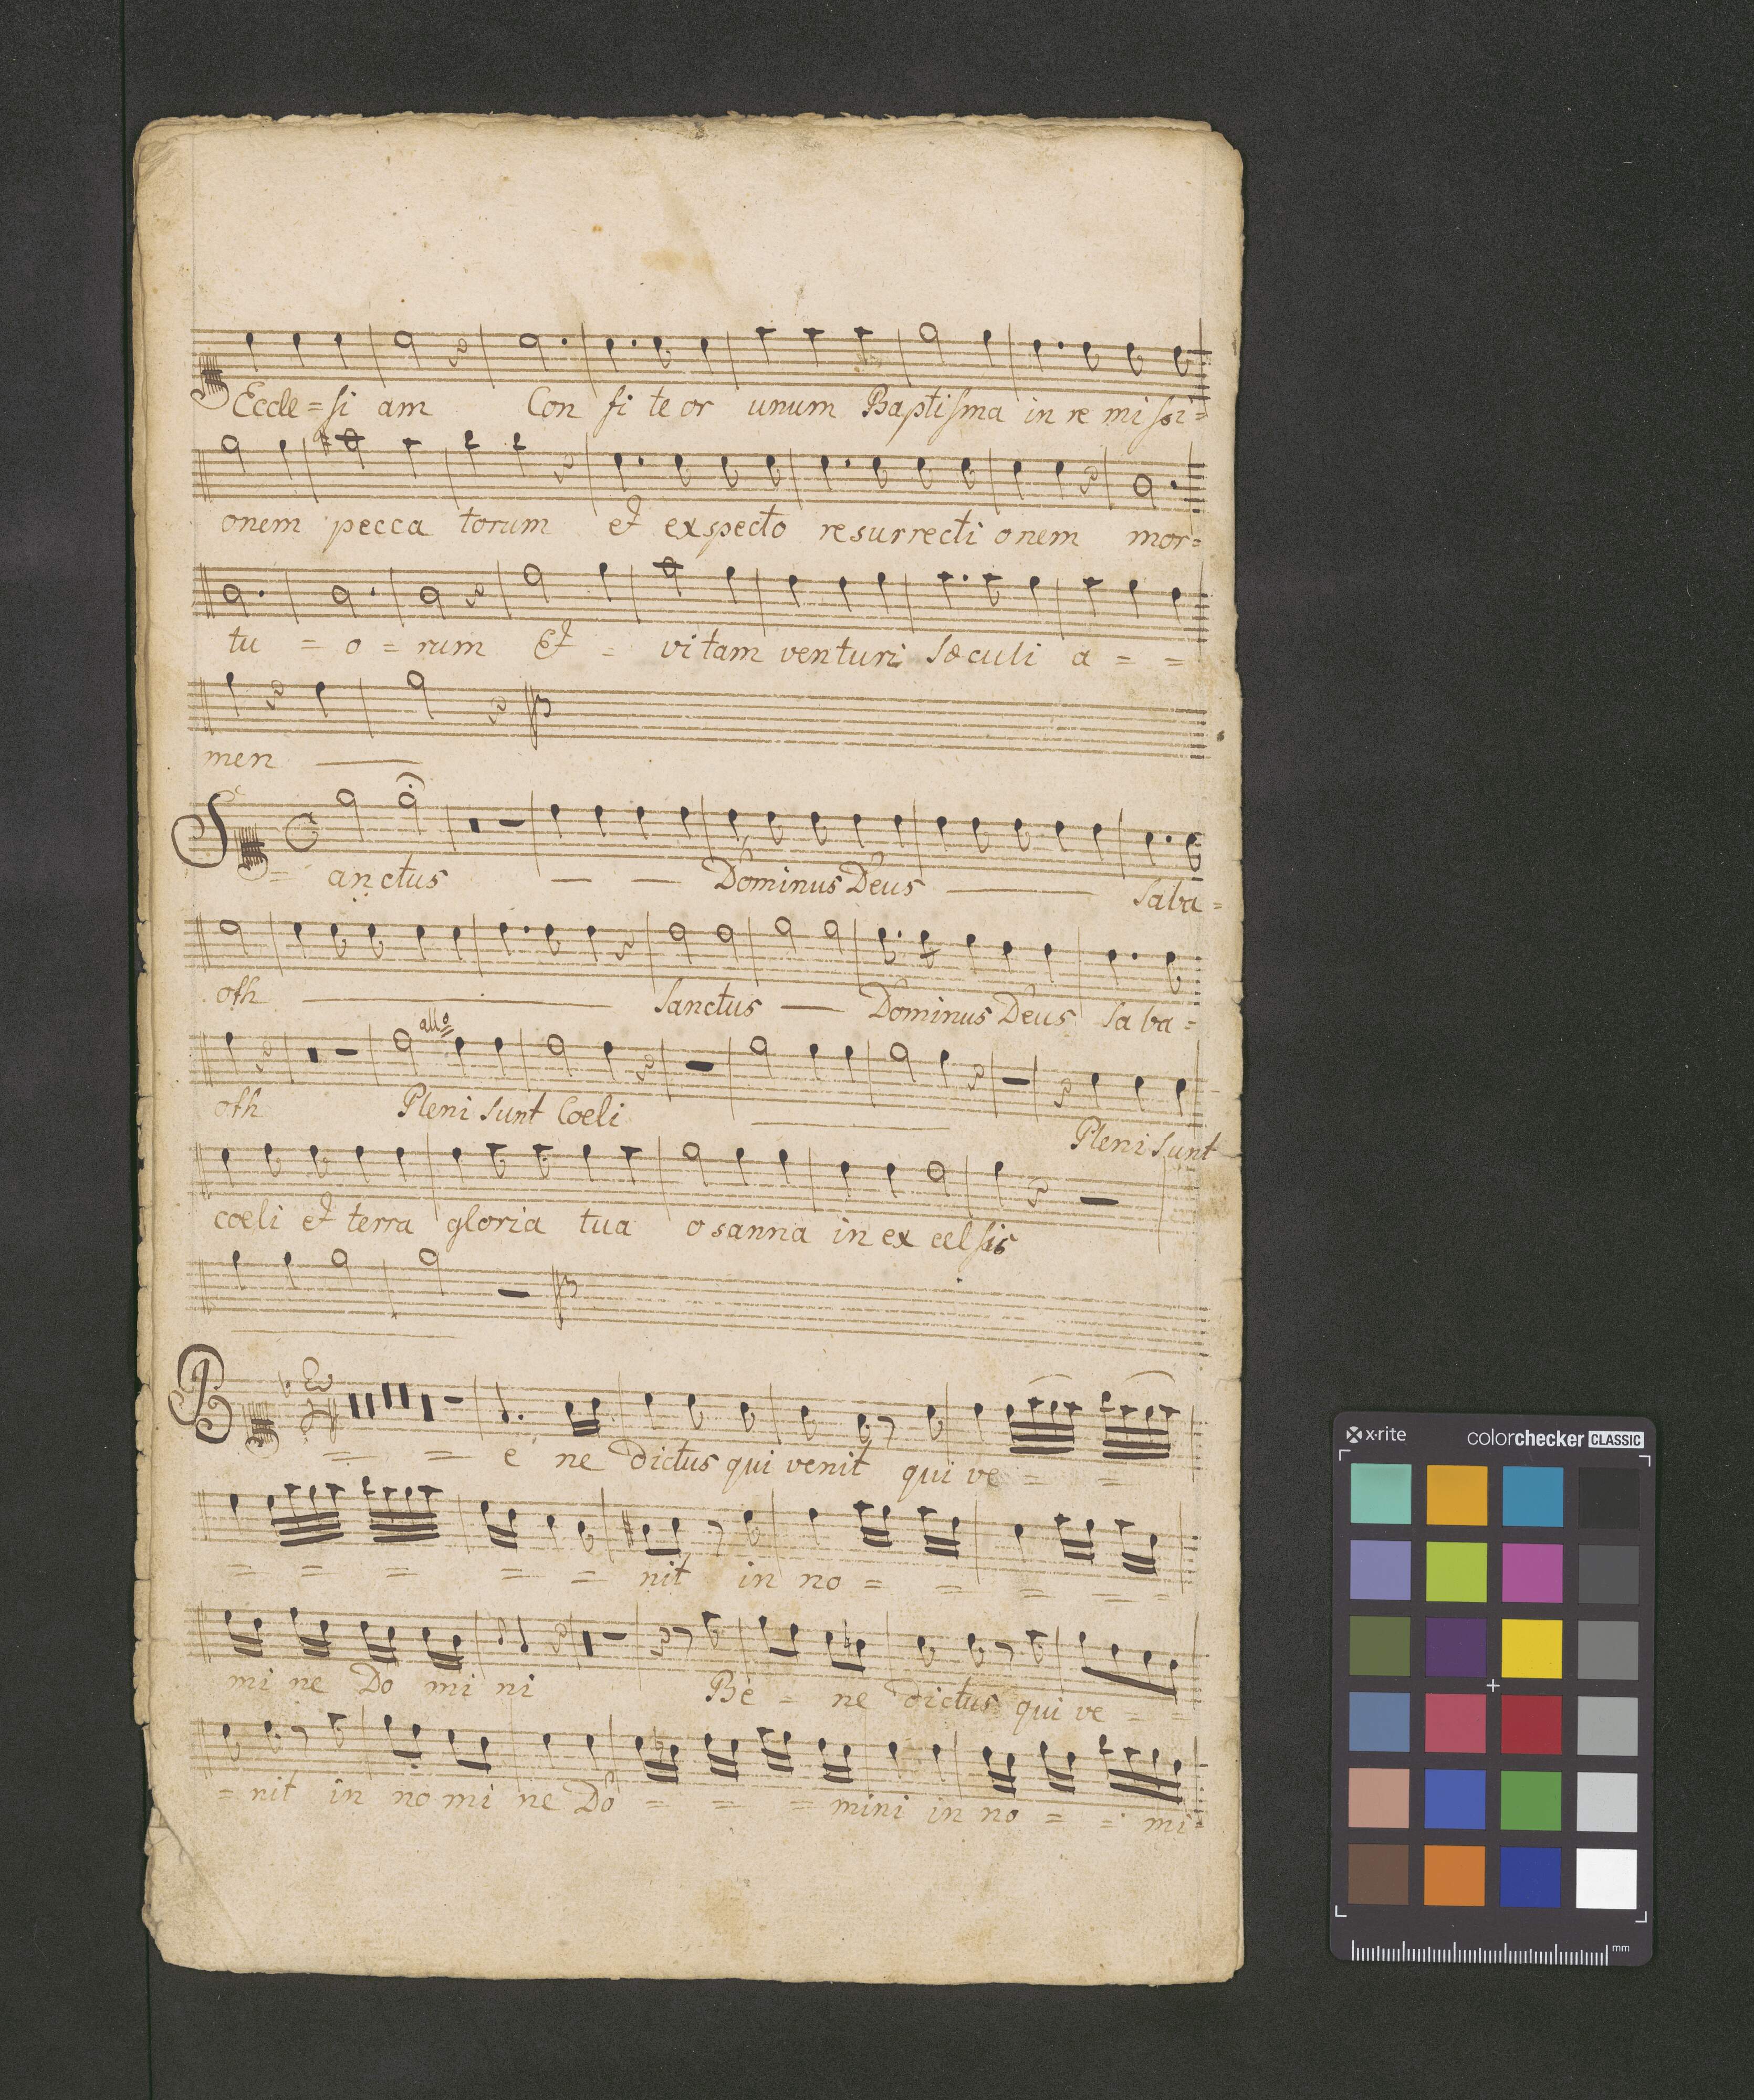 Eccle = si am Con fi te or unum Baptisma in re mi ssi =
onem pecca torum et exspecto resurrecti onem mor =
tu = o = rum Et = vi tam venturi sæculi a = =
men
S = anctus Dominus Deus Saba =
oth Sanctus Dominus Deus Saba =
allo
oth Pleni Sunt Coeli Pleni Sunt
coeli et terra gloria tua osanna in ex cel sis
B = = e ne dictus qui venit qui ve = =
= = = = = nit in no = = = = =
mi ne Do mi ni Be = ne dictus qui ve = =
= nit in no mi ne Do = = = mini in no = = mi =
x-rite colorchecker CLASSIC
mm